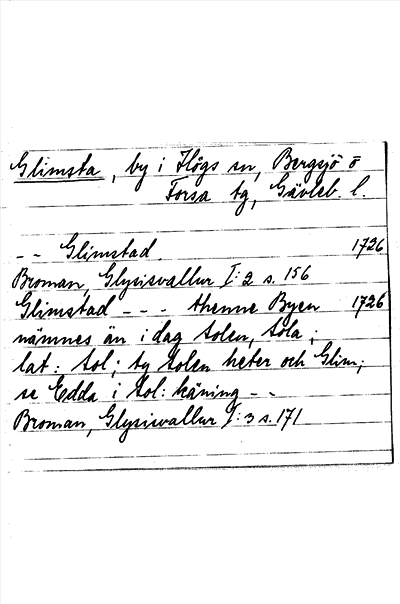 Glimsta, by i Högs sn, Bergsjö o
Forsa tg, Gävleb. l.
-- Glimstad. 1726
Broman, Glysisvallur I:2 s. 156
Glimstad --- thenne Byen 1726
nämnes än i dag Solen, Sola,
lat: Sol; ty Solen heter och Glim;
se Edda i Sol: käning --
Broman, Glysisvallur I:3 s. 171